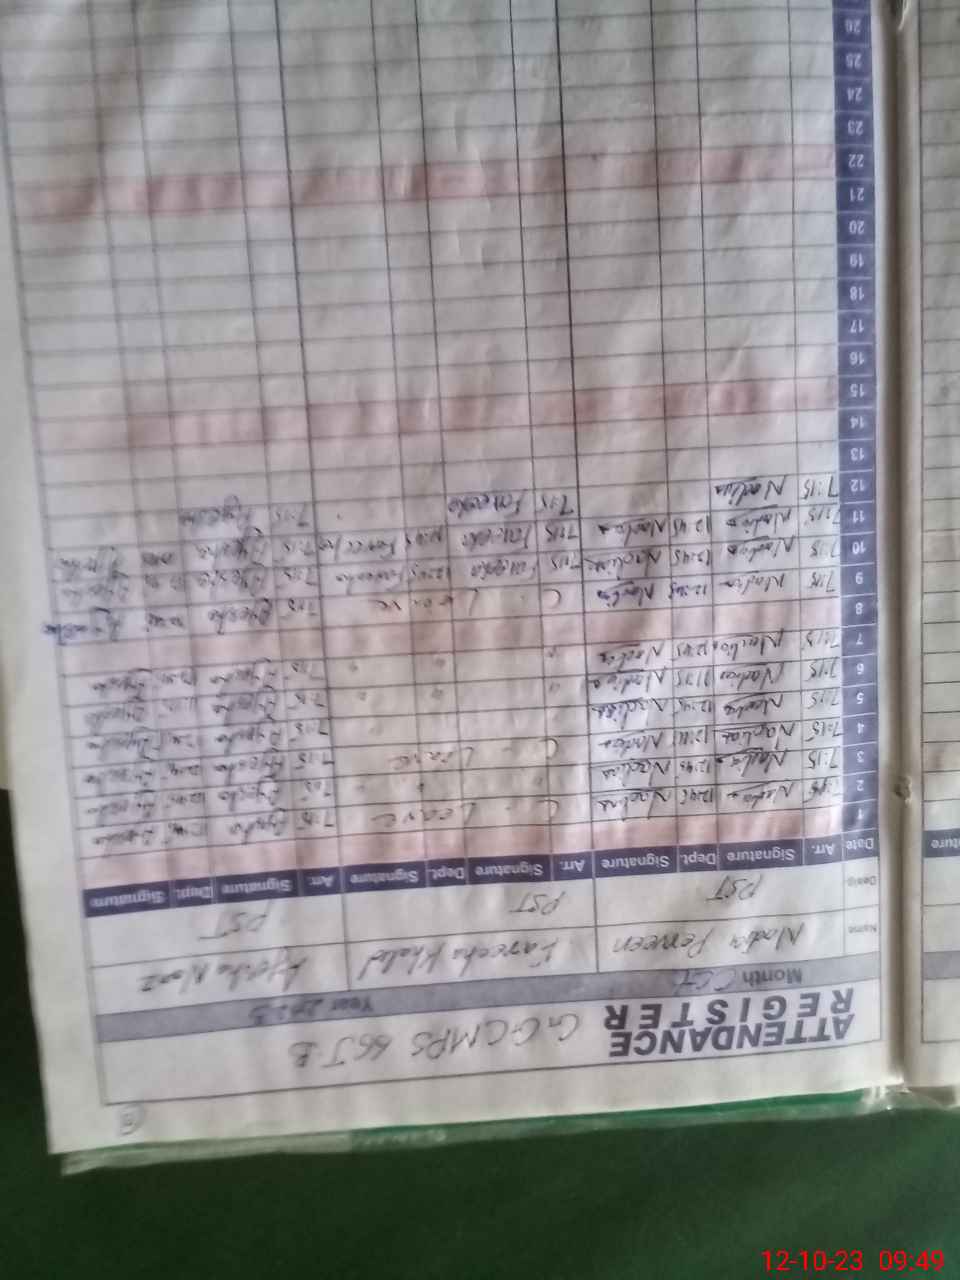 ATTENDANCE REGISTER GGCMPS 66 J.B
Month Oct Year 2023
Name Nadia Perveen Fareeha Khalid Ayesha Niaz
Desig. PST PST PST
Date Arr. Signature Dept. Signature Arr. Signature Dept. Signature Arr. Signature Dept. Signature
1
2 7:15 Nadia 12:45 Nadia Leave 7:15 Ayesha 12:45 Ayesha
3 7:15 Nadia 12:45 Nadia " " " 7:15 Ayesha 12:45 Ayesha
4 7:15 Nadia 12:45 Nadia Leave 7:15 Ayesha 12:45 Ayesha
5 7:15 Nadia 12:45 Nadia 7:15 Ayesha Ayesha
6 7:15 Nadia 11:35 Nadia " " " 7:15 Ayesha Ayesha
7 7:15 Nadia 12:45 Nadia " " " 7:15 Ayesha Ayesha
8
9 7:15 Nadia 12:45 Nadia Leave 7:15 Ayesha Ayesha
10 7:15 Nadia 12:45 Nadia 7:15 Fareeha 12:45 Fareeha 7:15 Ayesha Ayesha
11 7:15 Nadia 12:45 Nadia 7:15 Fareeha 12:45 Fareeha 7:15 Ayesha Ayesha
12 7:15 Nadia 7:15 Fareeha 7:15 Ayesha
13
14
15
16
17
18
19
20
21
22
23
24
25
26
12-10-23 09:49